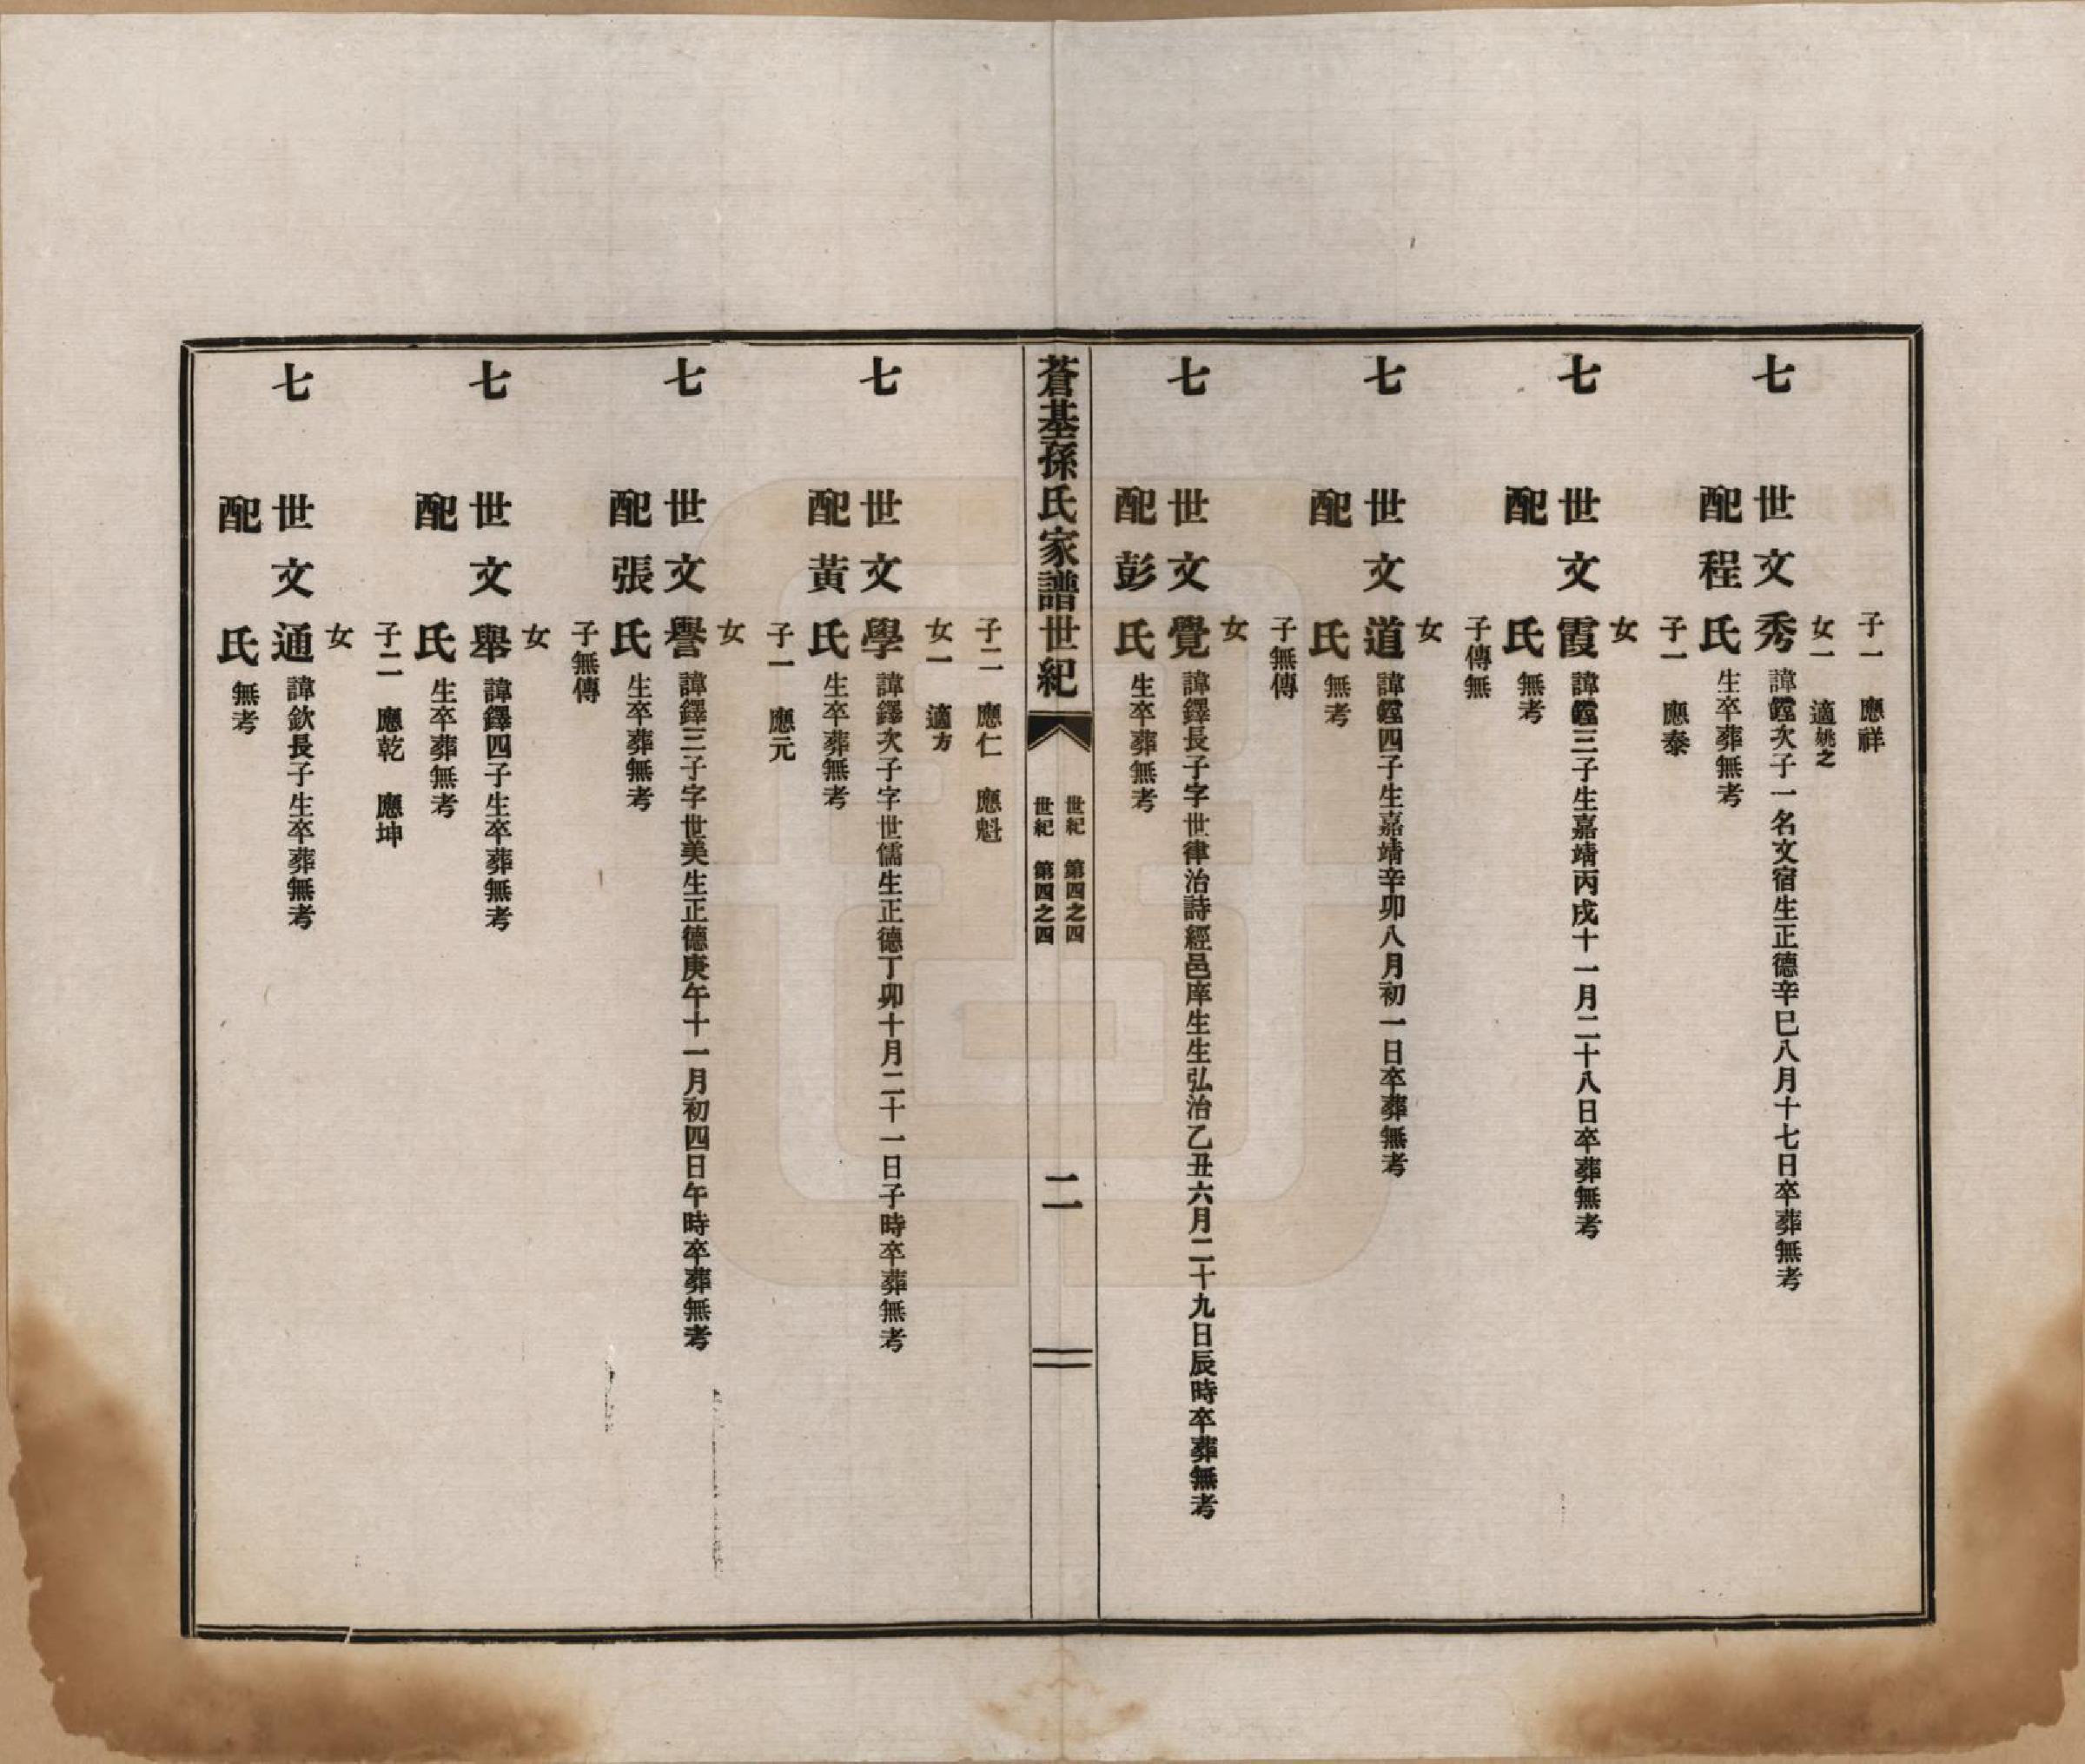 子一　應祥
女一　適姚之
七　世文秀　諱鏜次子一名文宿生正德辛巳八月十七日卒葬無考
配程氏　生卒葬無考
子一　應泰
女
七　世文霞　諱鏜三子生嘉靖丙戌十一月二十八日卒葬無考
配　氏　無考
子傳無
女
七　世文道　諱鏜四子生嘉靖辛卯八月初一日卒葬無考
配　氏　無考
子無傳
女
七　世文覺　諱鐸長子字世律治詩經邑庠生生弘治乙丑六月二十九日辰時卒葬無考
配彭氏　生卒葬無考
蒼基孫氏家譜世紀
世紀　第四之四
世紀　第四之四
二
子二　應仁　應魁
女一　適方
七　世文學　諱鐸次子字世儒生正德丁卯十月二十一日子時卒葬無考
配黃氏　生卒葬無考
子一　應元
女
七　世文譽　諱鐸三子字世美生正德庚午十一月初四日午時卒葬無考
配張氏　生卒葬無考
子無傳
女
七　世文舉　諱鐸四子生卒葬無考
配　氏　生卒葬無考
子二　應乾　應坤
女
七　世文通　諱欽長子生卒葬無考
配　氏　無考